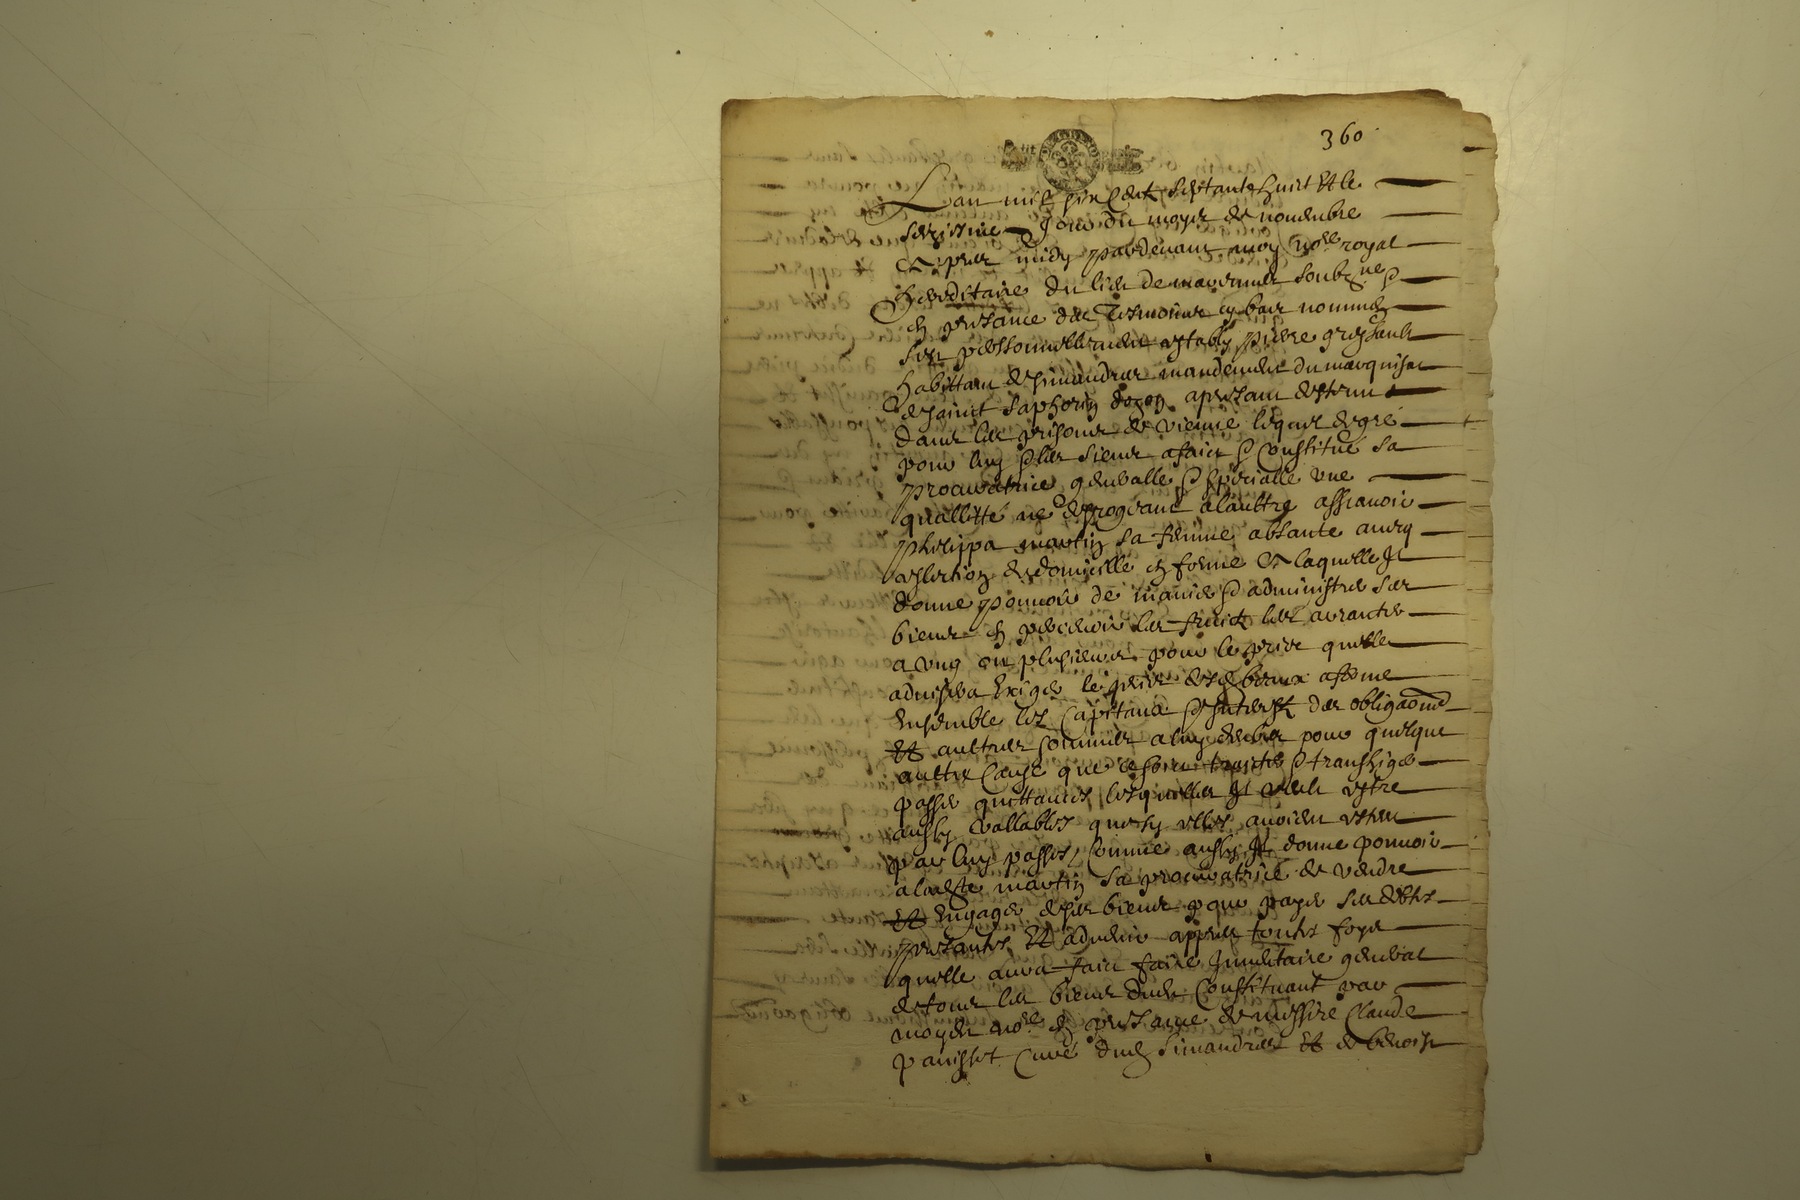 Petit papier
360
Lan mil six cent septante huict Et le
seziesme Jour du moys de novembre
apres midy pardevant moy no.re royal
hereditaire du lieu de marennes soubz.ne &
en presance des tesmoins cy bas nommes
sest personnellement estably pierre greysault
habittant de simandres mandement du marquisat
de sainct saphorin dozon apresant destenu
dans les prisons de vienne lequel de gre
pour luy & les siens a faict & constitué sa
procuratrice generalle & specialle une
quallitté ne desrogeant a laultre assavoir
philippa martin sa femme absante avecq
eslection de domicille en forme Et laquelle Il
donne pouvoir de manier & administrer ses
biens en percevoir les fruictz les arranter
a ung ou plusieurs pour le prix quelle
advisera Exiger le prix desd beaux aferme
Ensemble les capitaux & interestz des obligaons
Et aultres sommes a luy deubes pour quelque
aultre cause que ce soit traicter & transhiger
passer quittances lesquelles Il veult estre
aussy vallables que sy elles avoient esteu
par luy passes, comme aussy Il donne pouvoir
a lad martin sa procuratrice de vendre
Et Engager de ses biens pour payer ses debtes
presantes Et advenir appres toutes foys
quelle aura faict faire Inventaire general
de tous les biens dud constituant par
moyd no.re en presance de messire Claude
panisset curé dud simandres Et de benoist